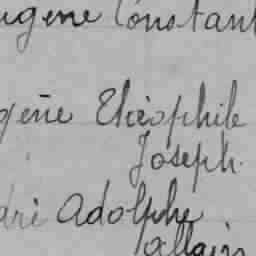 ugène Constant
gène Théophile
Joseph.
dré Adolphe
Allain